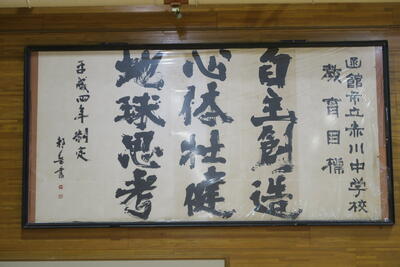 函館市立赤川中学校
教育目標
自主創造
心体壮健
地球思考
平成四年制定